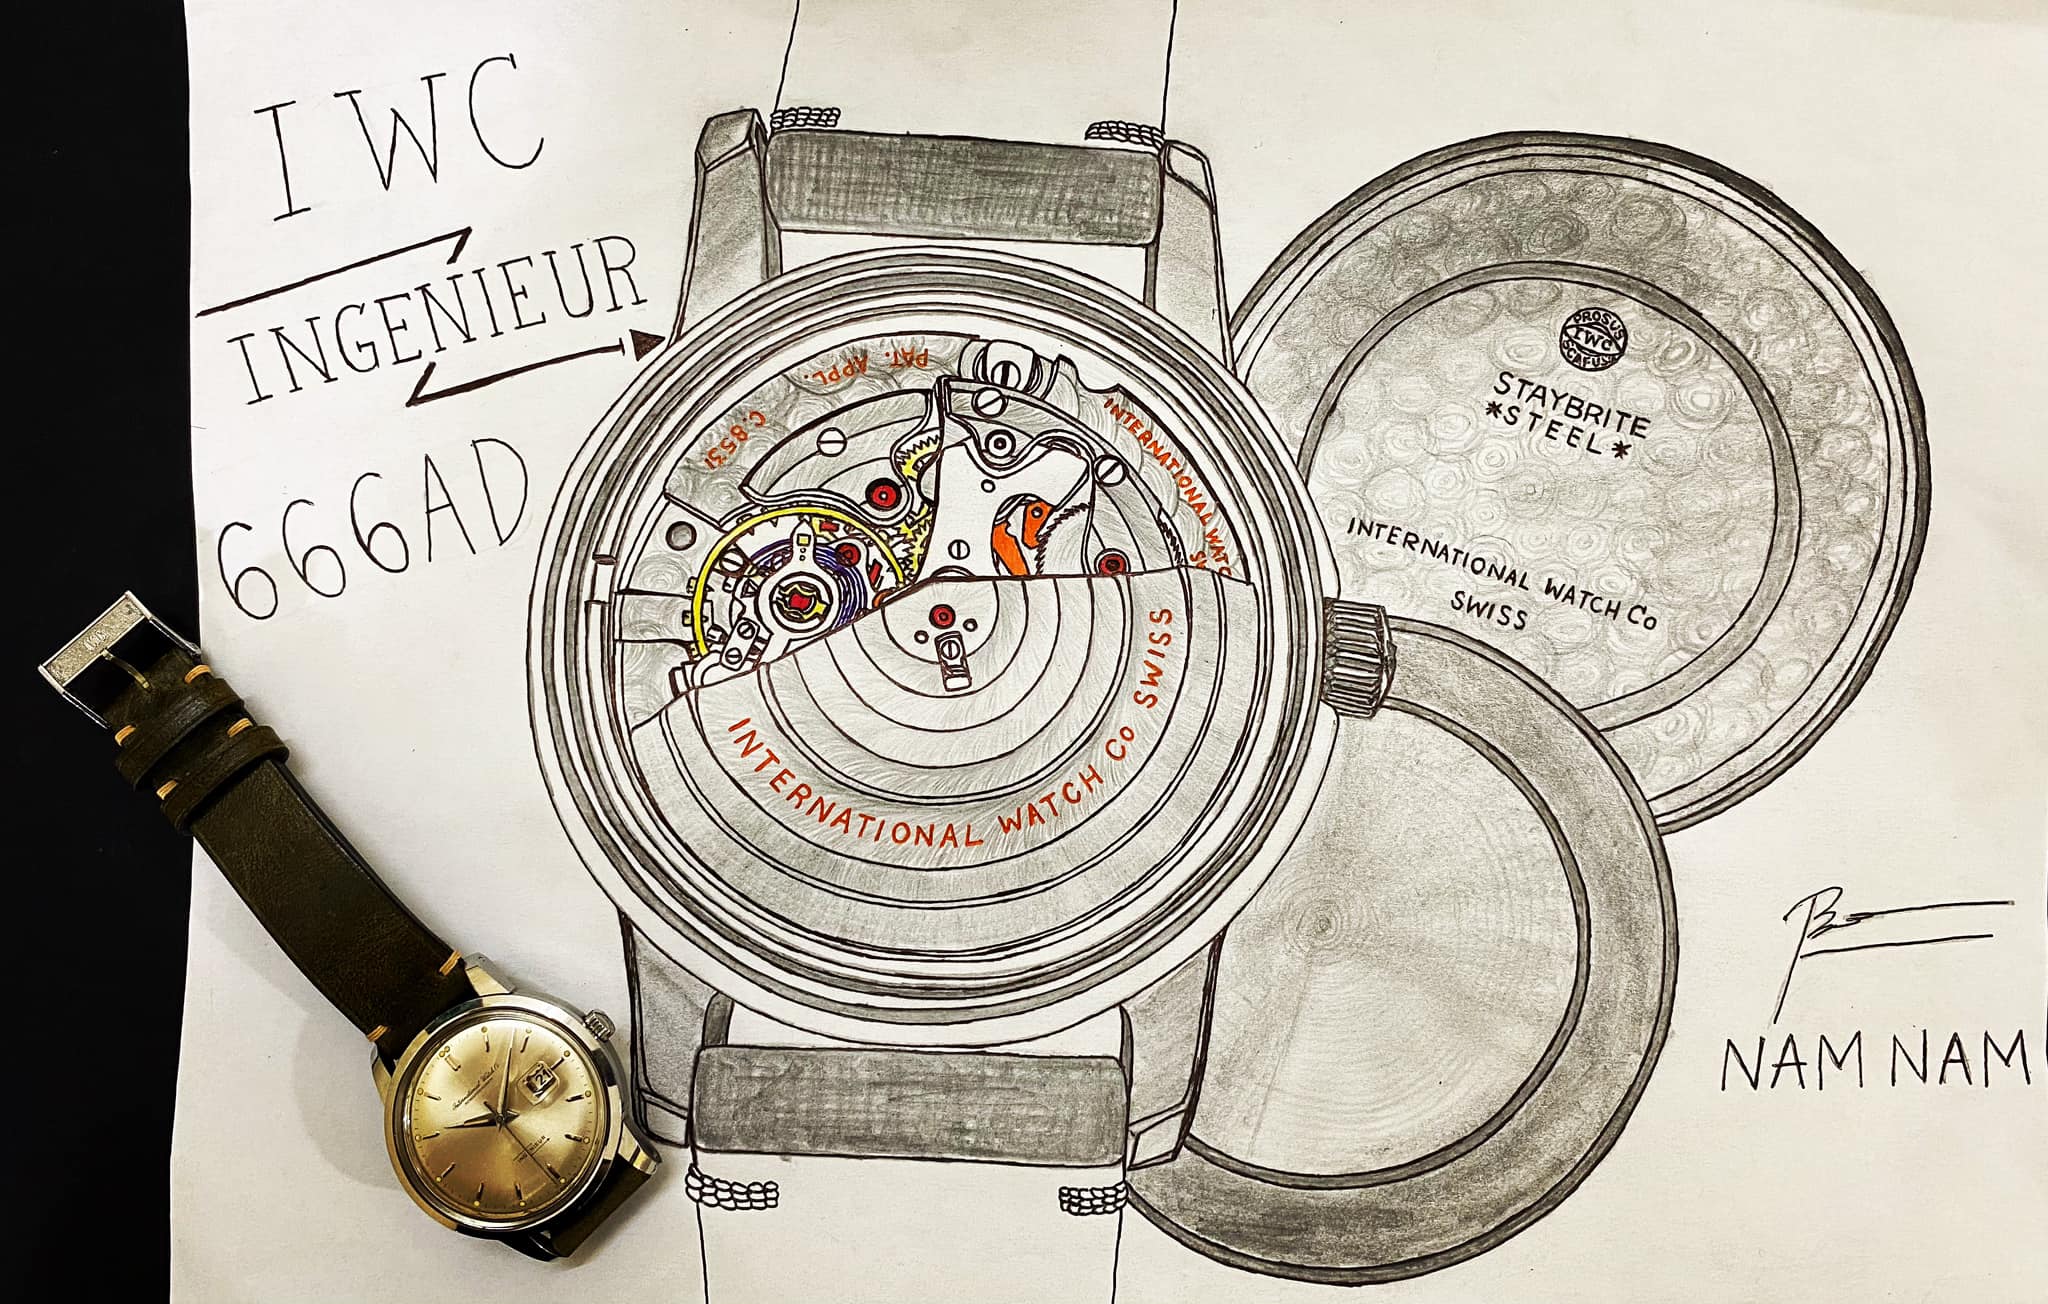 IWC
INGENIEUR
666AD
PAT. APPL.
C.8531
INTERNATIONAL WATC
SW
INTERNATIONAL WATCH Co SWISS
PROSUS
IWC
SCAFUSIA
STAYBRITE
*STEEL*
INTERNATIONAL WATCH Co
SWISS
NAM NAM
International Watch Co
21
INGENIEUR
IWC